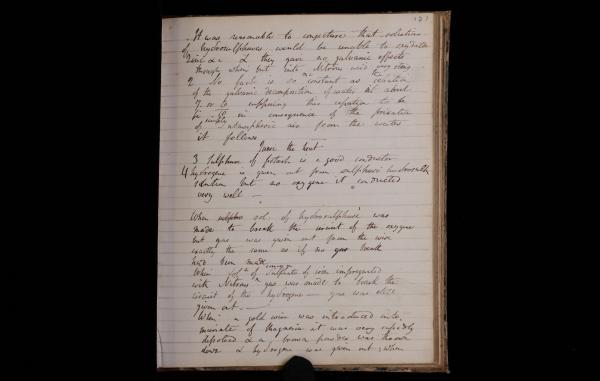 121
It was reasonable to conjecture that solutions
of hydrosulphures would be unable to oxydate
zinc &c & they gave no galvanic effects
though when put into Nitrous acid very strong
2 No fact is so constant as the
of the galvanic decomposition of water at about
7. or to supposing this to be
be simply in consequence of the
of atmospheric air from the water
it follows
3 Sulphure of potash is a good conductor
4 hydrogene is given out from sulphuric
solution but no oxygene it conducted
very well —
When sol. of hydrosulphure was
made to break the circuit of the oxygene
but gas was given out from the wire
exactly the same as if no break
had been made
When Sol of Sulphate of iron impregnated
with Nitrous gas was made to break the
circuit of the hydrogene — gas was also
given out. —
When a gold wire was introduced into
muriate of Magnesia it was very rapidly
dissolved & a brown powder was thrown
down & hydrogene was given out; when